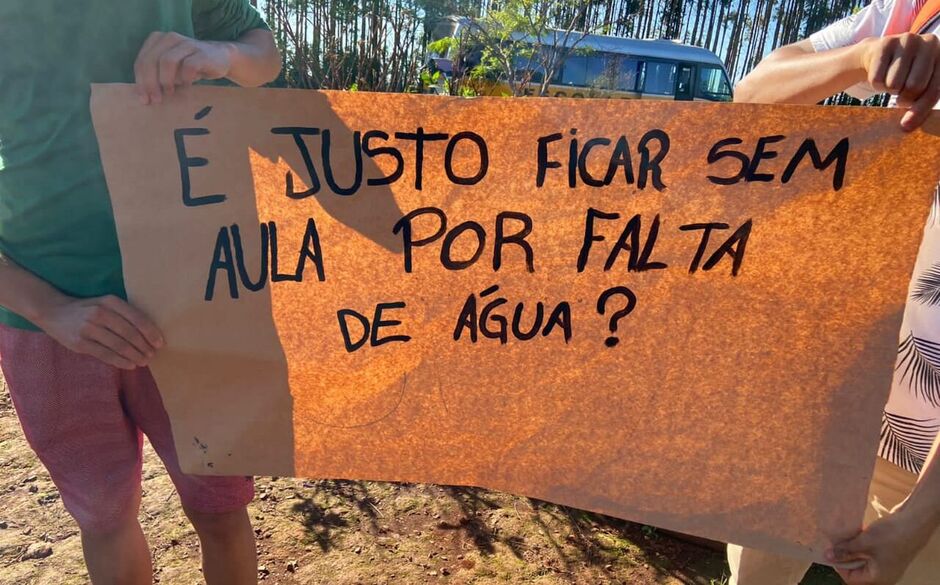 É JUSTO FICAR SEM
AULA POR FALTA
DE ÁGUA?